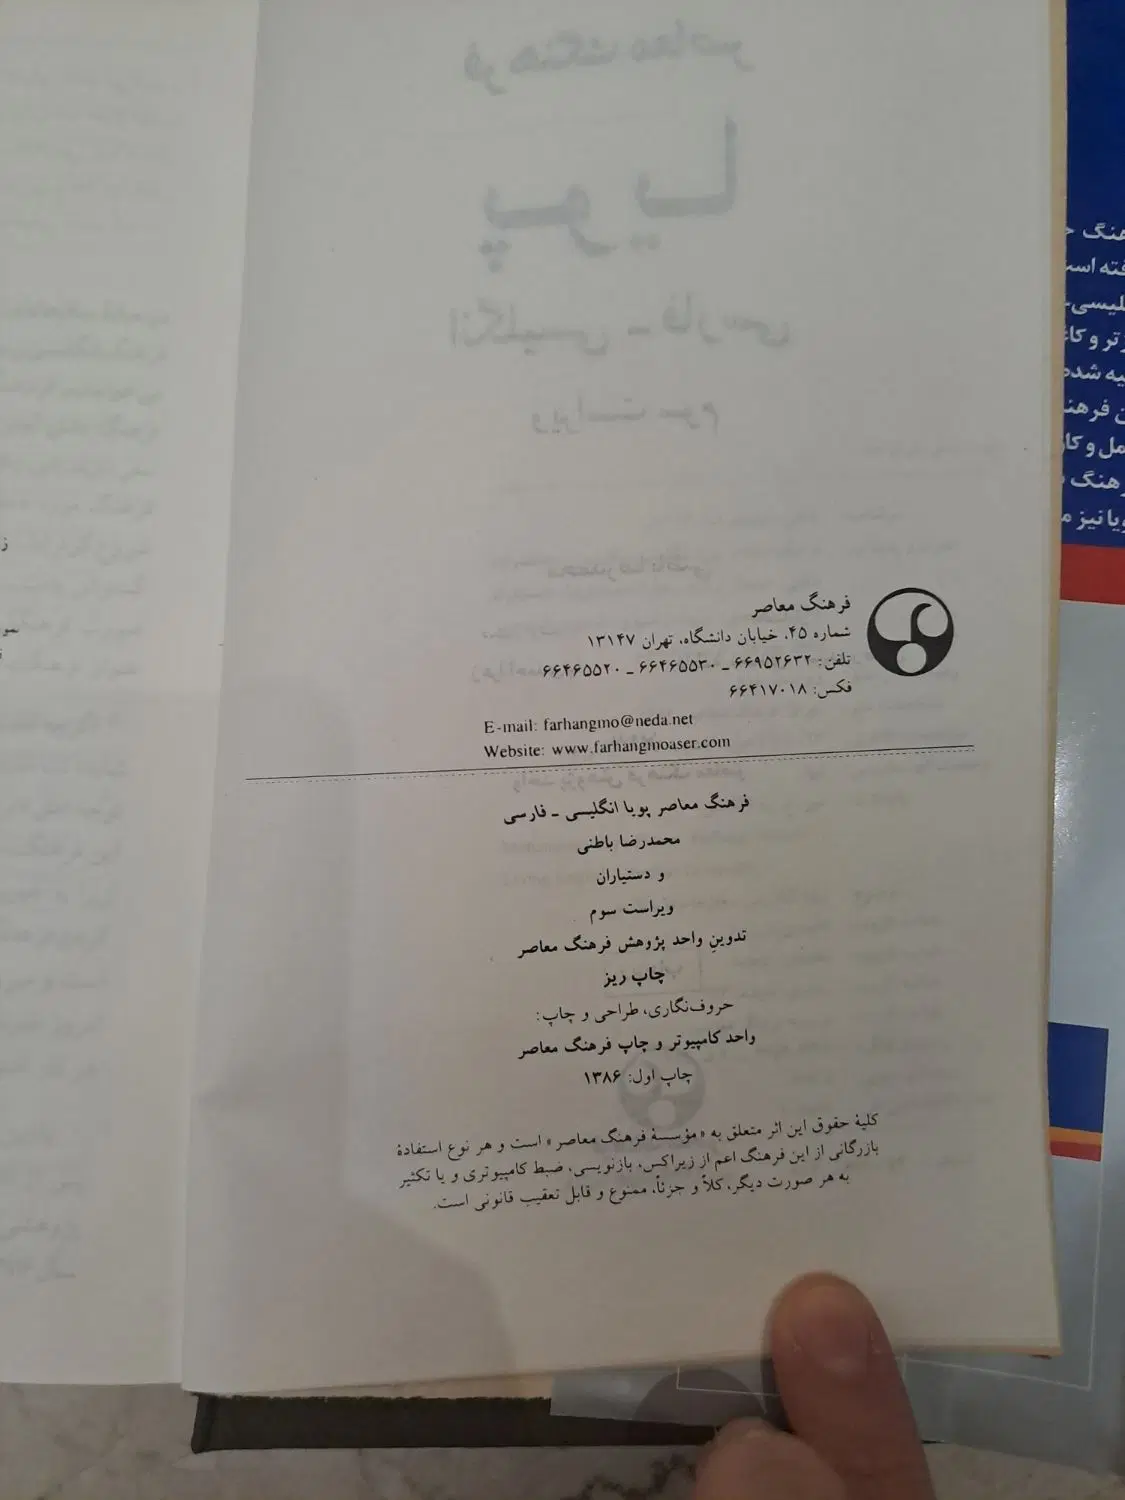 فرهنگ معاصر
شماره ۴۵، خیابان دانشگاه، تهران ۱۳۱۴۷
تلفن: ۶۶۹۵۲۶۳۲ ـ ۶۶۴۶۵۵۳۰ ـ ۶۶۴۶۵۵۲۰
فکس: ۶۶۴۱۷۰۱۸
E-mail: farhangmo@neda.net
Website: www.farhangmoaser.com
فرهنگ معاصر پویا انگلیسی ـ فارسی
محمدرضا باطنی
و دستیاران
ویراست سوم
تدوینِ واحد پژوهش فرهنگ معاصر
چاپ ریز
حروف‌نگاری، طراحی و چاپ:
واحد کامپیوتر و چاپ فرهنگ معاصر
چاپ اول: ۱۳۸۶
کلیهٔ حقوق این اثر متعلق به «مؤسسهٔ فرهنگ معاصر» است و هر نوع استفادهٔ
بازرگانی از این فرهنگ اعم از زیراکس، بازنویسی، ضبط کامپیوتری و یا تکثیر
به هر صورت دیگر، کلاً و جزئاً، ممنوع و قابل تعقیب قانونی است.